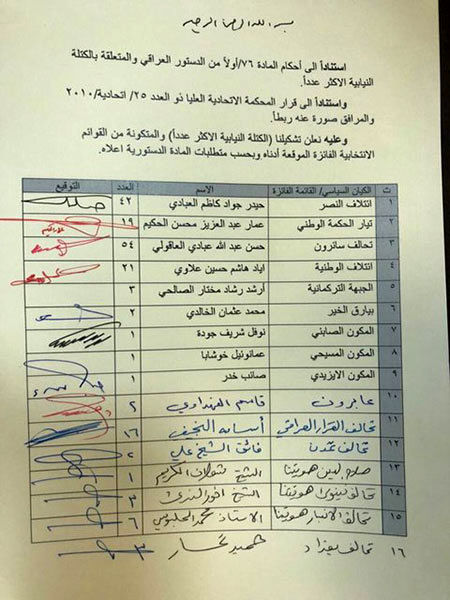 بسم الله الرحمن الرحيم
استناداً الى أحكام المادة ٧٦/أولاً من الدستور العراقي والمتعلقة بالكتلة
النيابية الاكثر عدداً.
واستناداً الى قرار المحكمة الاتحادية العليا ذو العدد ٢٥/ اتحادية/٢٠١٠
والمرافق صورة عنه ربطاً.
وعليه نعلن تشكيلنا (الكتلة النيابية الاكثر عدداً) والمتكونة من القوائم
الانتخابية الفائزة الموقعة أدناه وبحسب متطلبات المادة الدستورية اعلاه.
ت الكيان السياسي/ القائمة الفائزة الاسم العدد التوقيع
١ ائتلاف النصر حيدر جواد كاظم العبادي ٤٢
٢ تيار الحكمة الوطني عمار عبد العزيز محسن الحكيم ١٩
٣ تحالف سائرون حسن عبد الله عبادي العاقولي ٥٤
٤ ائتلاف الوطنية اياد هاشم حسين علاوي ٢١
٥ الجبهة التركمانية أرشد رشاد مختار الصالحي ٣
٦ بيارق الخير محمد عثمان الخالدي ٢
٧ المكون الصابئي نوفل شريف جودة ١
٨ المكون المسيحي عمانوئيل خوشابا ١
٩ المكون الايزيدي صائب خدر ١
١٠ عابرون قاسم الفهداوي ٢
١١ تحالف القرار العراقي أسامة النجيفي ١٦
١٢ تحالف تمدن فائق الشيخ علي ٢
١٣ صلاح الدين هويتنا الشيخ شعلان الكريم ١
١٤ تحالف نينوى هويتنا الشيخ ٣
١٥ تحالف الانبار هويتنا الاستاذ محمد الحلبوسي ٦
١٦ تحالف بغداد ٣